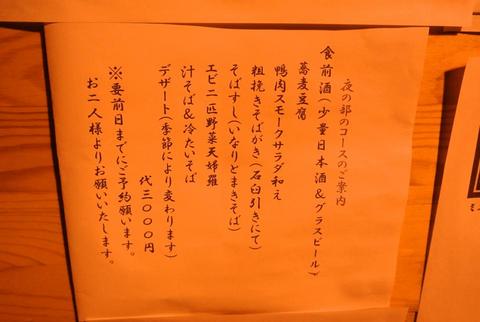 夜の部のコースのご案内
食前酒(少量日本酒&グラスビール)
蕎麦豆腐
鴨肉スモークサラダ和え
粗挽きそばがき(石臼引きにて)
そばすし(いなりとまきそば)
エビ二匹野菜天婦羅
汁そば&冷たいそば
デザート(季節により変わります)
代三000円
※要前日までにご予約願います。
お二人様よりお願いいたします。